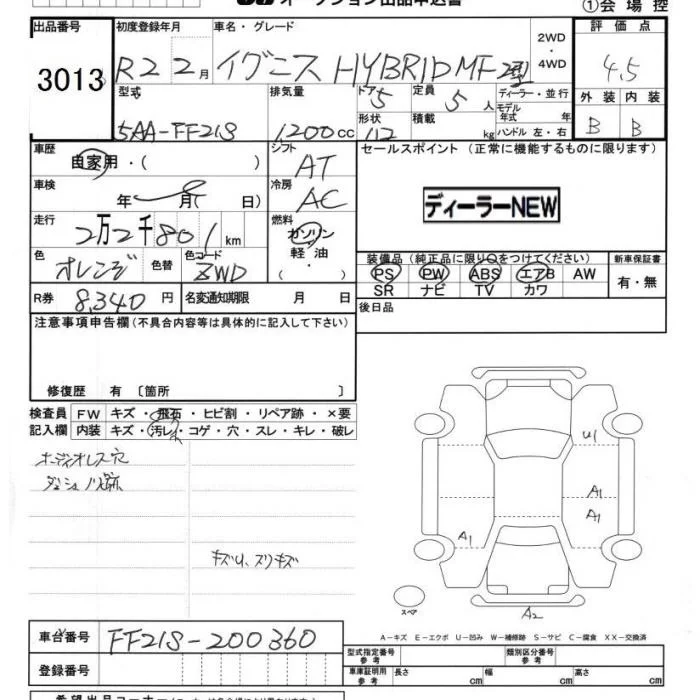 オークション出品申込書
①会 場 控
出品番号 初度登録年月 車名・グレード 2WD・4WD 評 価 点
3013 R2 2月 イグニス HYBRID MF 2型 4.5
型式 排気量 ドア 5 定員 5人 ディーラー・並行 外 装 内 装
5AA-FF21S 1200cc 形状 積載 kg モデル年式 年 ハンドル 左・右 B B
車歴 自家用・( ) シフト AT セールスポイント (正常に機能するものに限ります)
車検 年 月( 日) 冷房 AC
ディーラーNEW
走行 2万2千801km 燃料 ガソリン・軽油・( )
色 オレンジ 色替 色コード ZWD
装備品 (純正品に限り○をつけてください) 新車保証書
PS PW ABS エアB AW 有・無
SR ナビ TV カワ
R券 8,340円 名変通知期限 月 日 後日品
注意事項申告欄(不具合内容等は具体的に記入して下さい)
修復歴 有 〔箇所 〕
検査員 FW キズ・飛石・ヒビ割・リペア跡・×要
記入欄 内装 キズ・汚レ・コゲ・穴・スレ・キレ・破レ
オーディオレス穴
ダッシュ
キズU、スリキズ
U1
A1
A1
A1
A2
スペア
A-キズ E-エクボ U-凹み W-補修跡 S-サビ C-腐食 XX-交換済
車台番号 FF21S-200360
登録番号
型式指定番号 参考 類別区分番号 参考
車庫証明用 参考 長さ cm 幅 cm 高さ cm